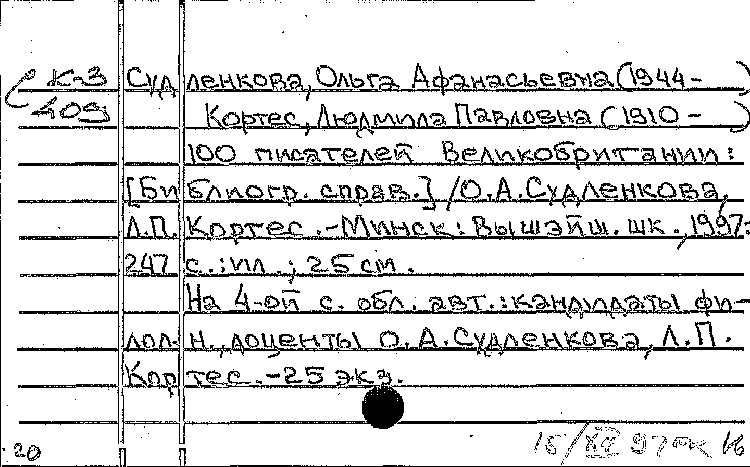 К-3 Судленкова, Ольга Афанасьевна (1944- )
409 Кортес, Людмила Павловна (1910- )
100 писателей Великобритании:
[Библиогр. справ.] / О.А.Судленкова,
Л.П. Кортес.-Минск: Вышэйш. шк., 1997.-
247 с.: ил.; 25 см.
На 4-ой с. обл. авт.: кандидаты фи-
лол. н., доценты О.А.Судленкова, Л.П.
Кортес.-25 экз.
20 15/XII 97